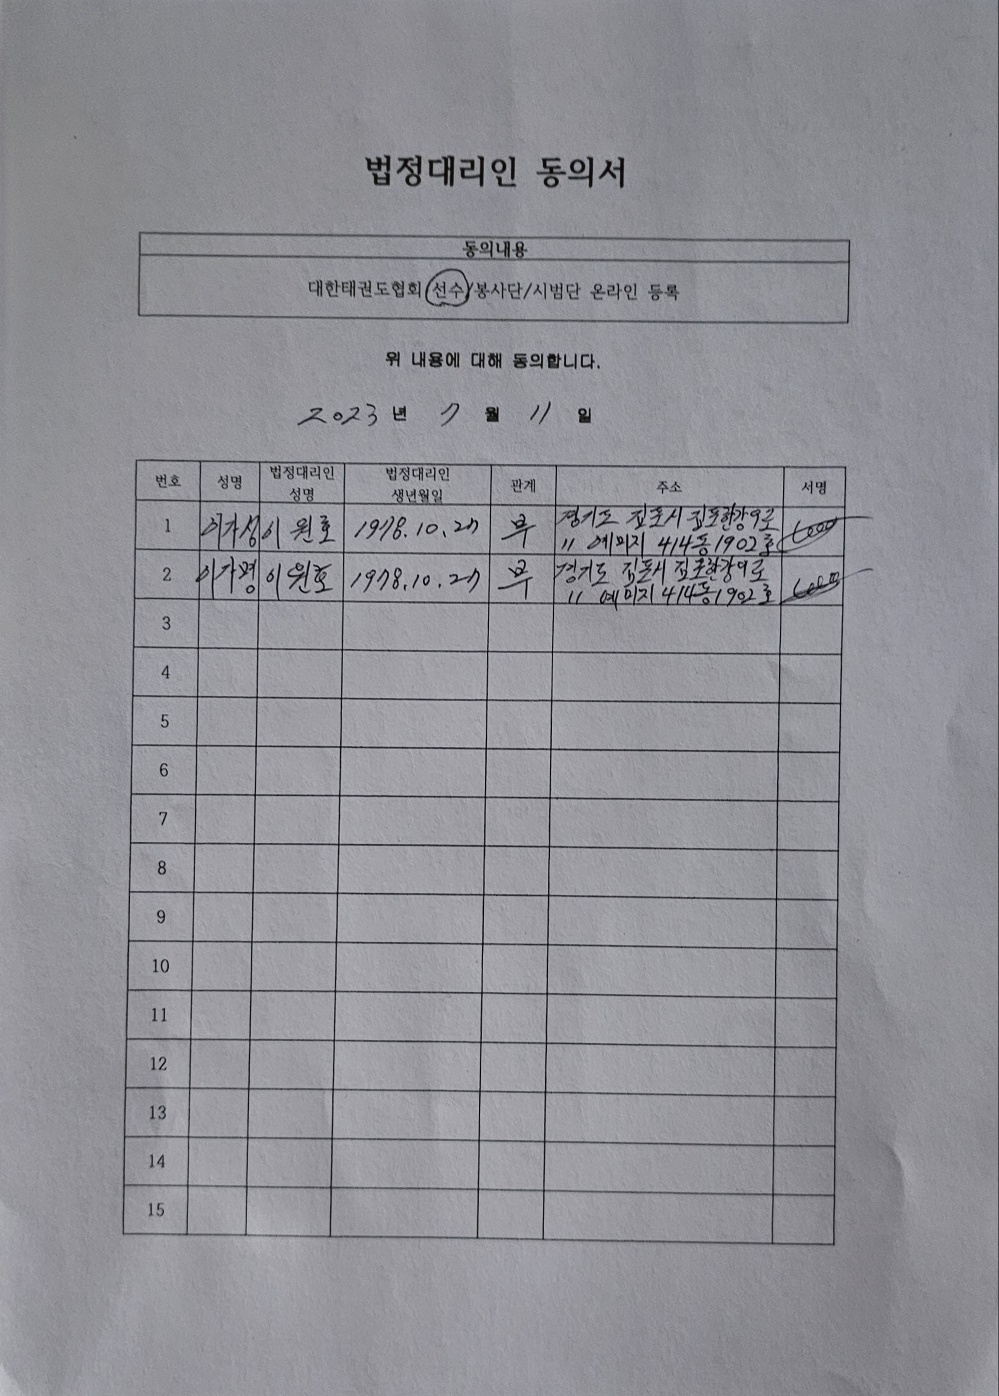 법정대리인 동의서
동의내용
대한태권도협회 선수/봉사단/시범단 온라인 등록
위 내용에 대해 동의합니다.
2023 년 7 월 11 일
번호 성명 법정대리인 성명 법정대리인 생년월일 관계 주소 서명
1 이원호 1978.10.27 부 경기도 김포시 김포한강9로
〃 예미지 414동 1902호
2 이원호 1978.10.27 부 경기도 김포시 김포한강9로
〃 예미지 414동 1902호
3
4
5
6
7
8
9
10
11
12
13
14
15